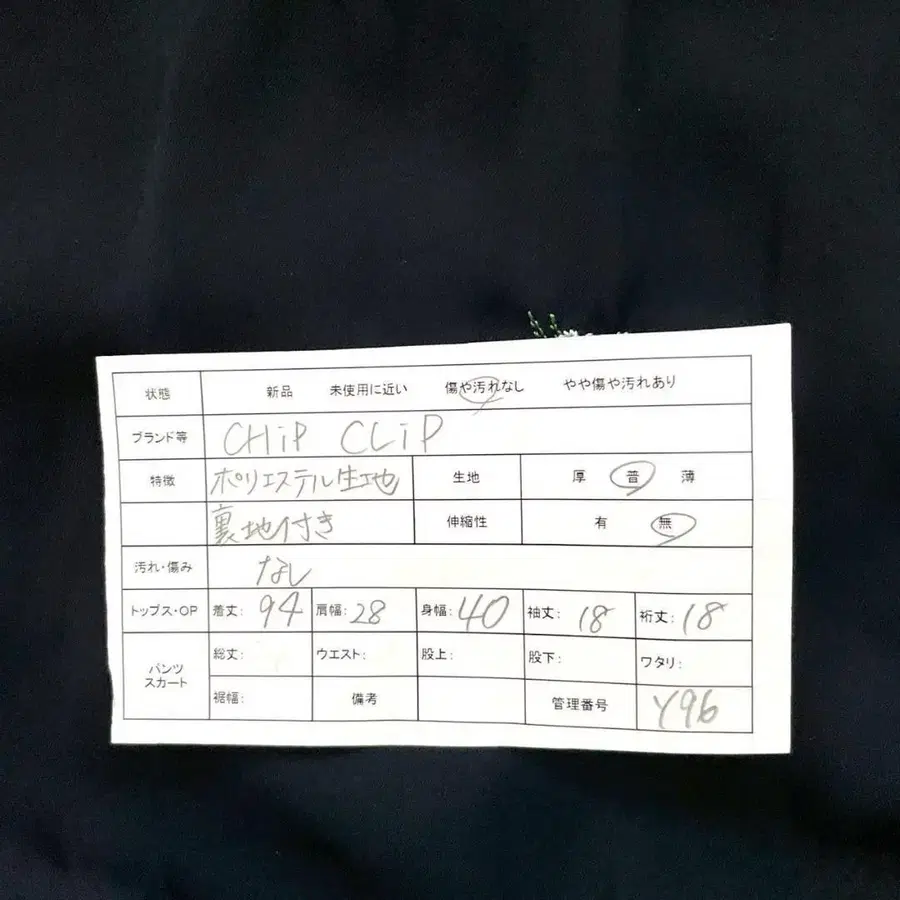 状態 新品 未使用に近い 傷や汚れなし やや傷や汚れあり
ブランド等 CHiP CLiP
特徴 ポリエステル生地 生地 厚 普 薄
裏地付き 伸縮性 有 無
汚れ・傷み なし
トップス・OP 着丈: 94 肩幅: 28 身幅: 40 袖丈: 18 裄丈: 18
パンツ スカート 総丈: ウエスト: 股上: 股下: ワタリ:
裾幅: 備考 管理番号 Y96